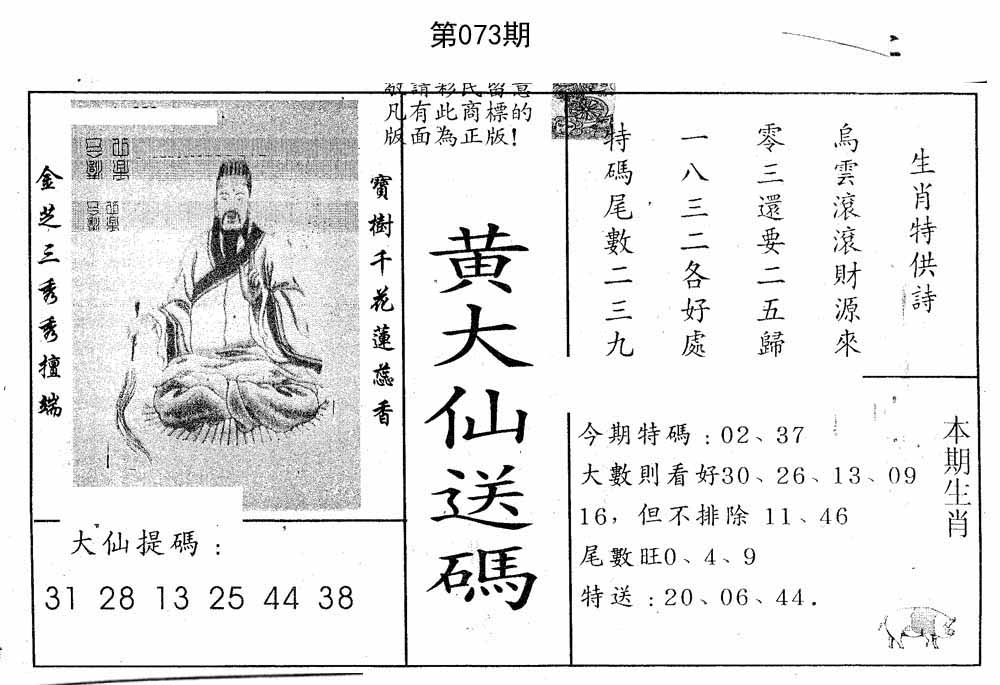 第073期
敬請彩民留意
凡有此商標的
版面為正版!
生肖特供詩
烏雲滾滾財源來
零三還要二五歸
一八三二各好處
特碼尾數二三九
寶樹千花蓮蕊香
金芝三秀秀擅端
黄大仙送碼
大仙提碼：
31 28 13 25 44 38
本期生肖
今期特碼：02、37
大數則看好30、26、13、09
16，但不排除 11、46
尾數旺0、4、9
特送：20、06、44．